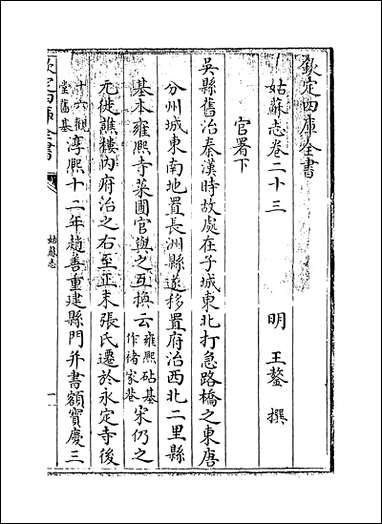 欽定四庫全書
姑蘇志卷二十三 明 王鏊 撰
官署下
吳縣舊治秦漢時故處在子城東北打急路橋之東唐
分州城東南地置長洲縣遂移置府治西北二里縣
基本雍熙寺菜圃官與之互換云雍熙砧基作褚家巷宋仍之
元徙譙樓内府治之右至正末張氏遷於永定寺後
十六觀堂舊基淳熙十二年趙善重建縣門并書額寳慶三
欽定四庫全書
姑蘇志
一